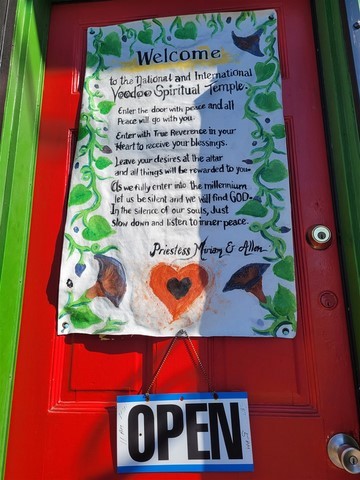 Welcome
to the National and International
Voodoo Spiritual Temple.
Enter the door with peace and all
Peace will go with you.
Enter with True Reverence in your
Heart to receive your blessings.
Leave your desires at the altar
and all things will be rewarded to you.
As we fully enter into the millennium
let us be silent and we will find GOD.
In the silence of our souls, Just
slow down and listen to inner peace.
Priestess Miriam & Allen
OPEN